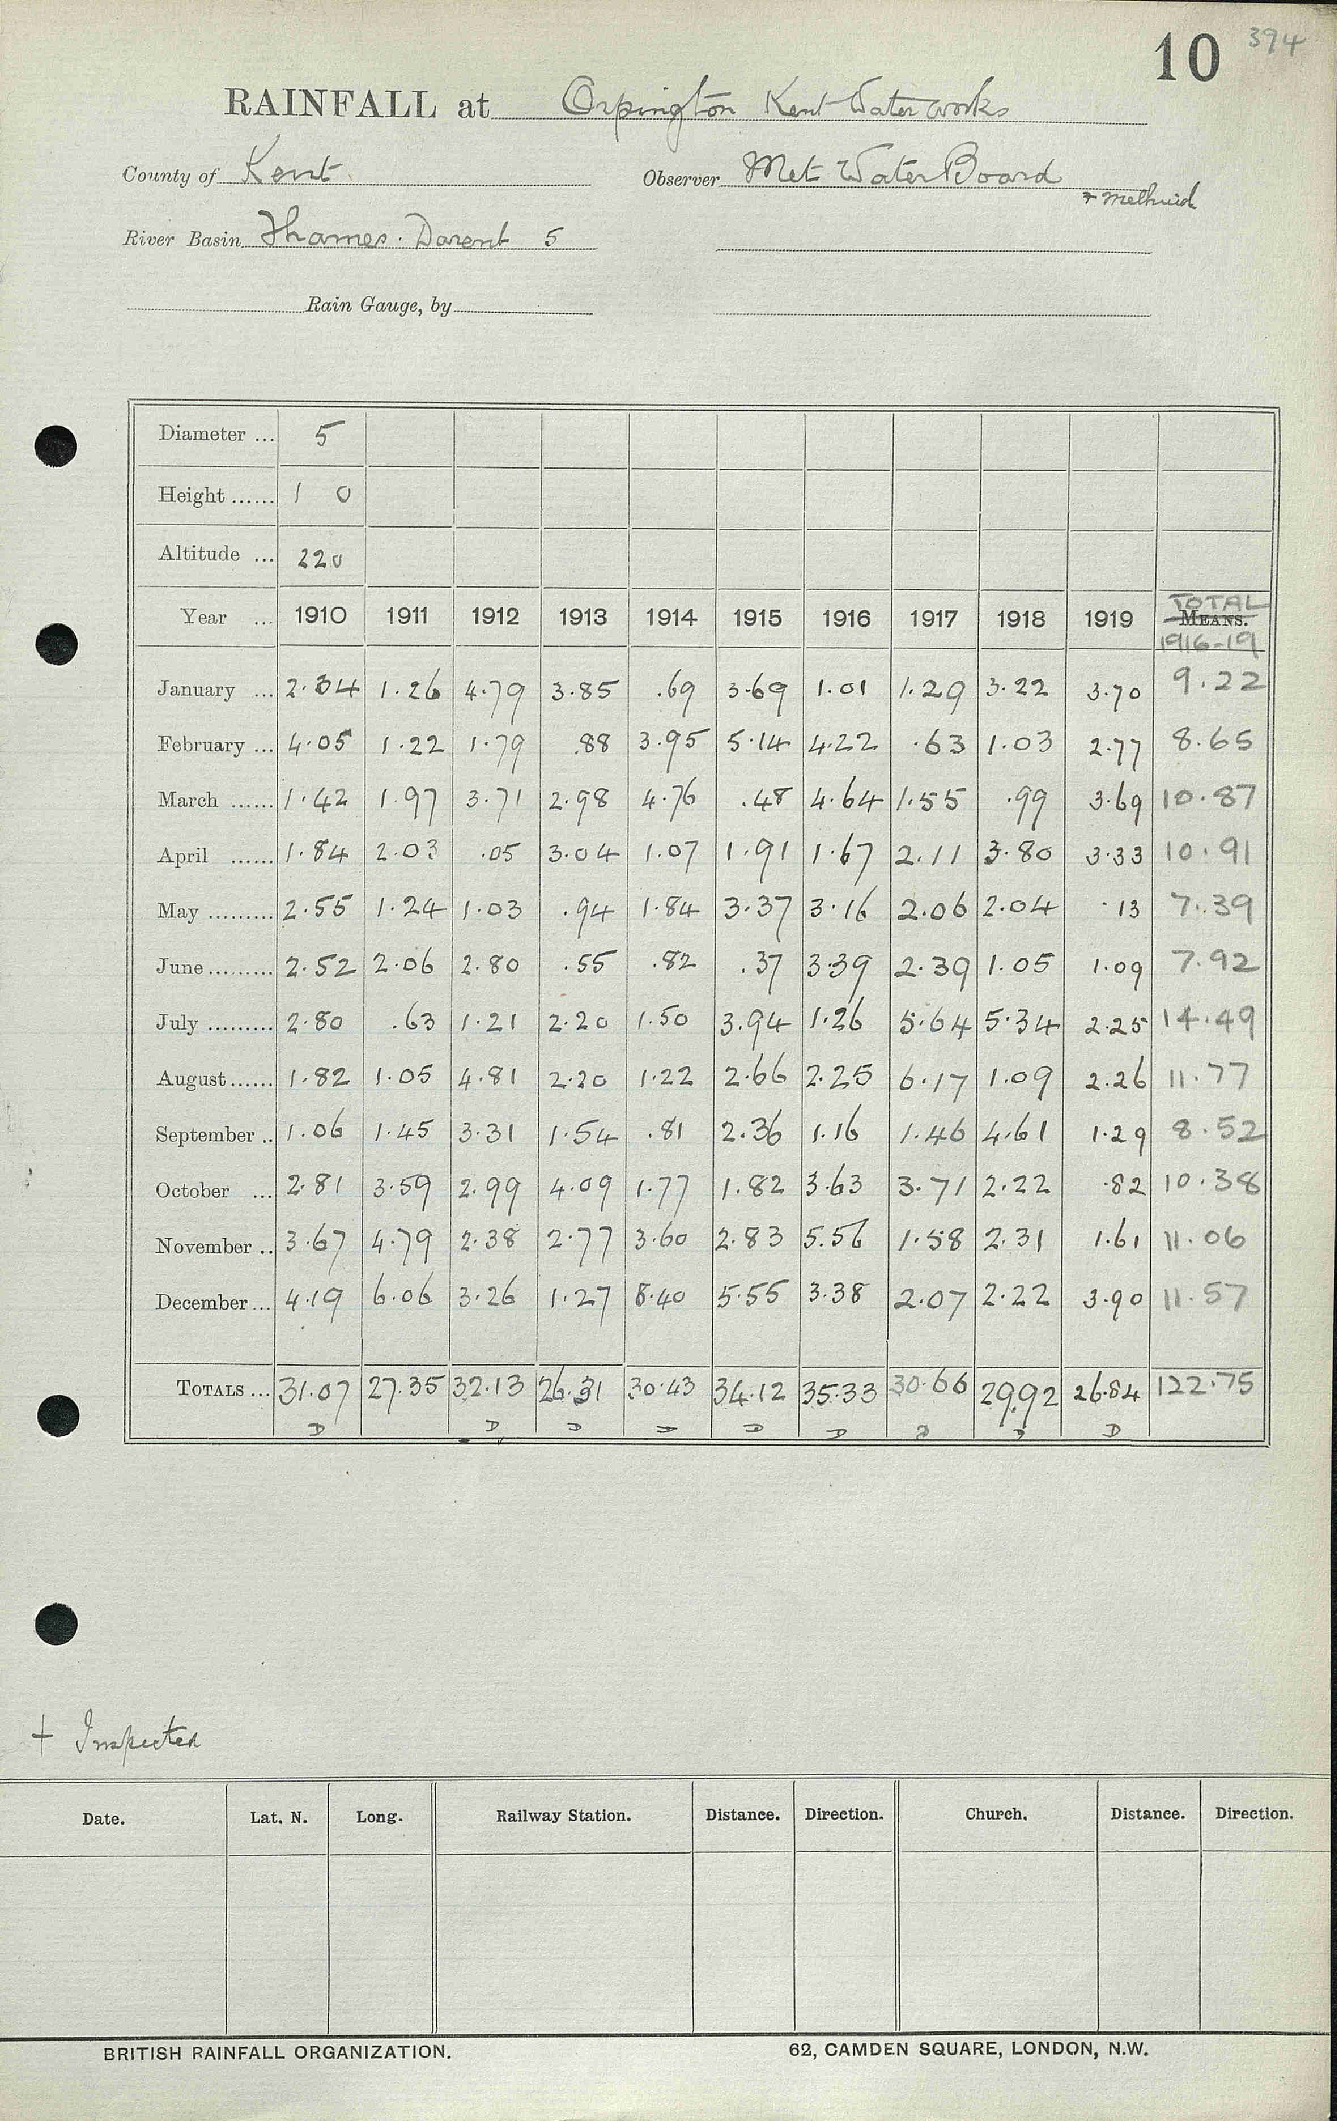 10 394
RAINFALL at Orpington Kent Waterworks
County of Kent Observer Met Water Board
River Basin Thames. Darent 5
Rain Gauge, by
Diameter ... 5
Height ...... 1 0
Altitude ... 220
Year ... 1910 1911 1912 1913 1914 1915 1916 1917 1918 1919 TOTAL MEANS. 1916-19
January ... 2.34 1.26 4.79 3.85 .69 3.69 1.01 1.29 3.22 3.70 9.22
February ... 4.05 1.22 1.79 .88 3.95 5.14 4.22 .63 1.03 2.77 8.65
March ...... 1.42 1.97 3.71 2.98 4.76 .48 4.64 1.55 .99 3.69 10.87
April ...... 1.84 2.03 .05 3.04 1.07 1.91 1.67 2.11 3.80 3.33 10.91
May ......... 2.55 1.24 1.03 .94 1.84 3.37 3.16 2.06 2.04 .13 7.39
June ......... 2.52 2.06 2.80 .55 .82 .37 3.39 2.39 1.05 1.09 7.92
July ......... 2.80 .63 1.21 2.20 1.50 3.94 1.26 5.64 5.34 2.25 14.49
August ...... 1.82 1.05 4.81 2.20 1.22 2.66 2.25 6.17 1.09 2.26 11.77
September .. 1.06 1.45 3.31 1.54 .81 2.36 1.16 1.46 4.61 1.29 8.52
October ... 2.81 3.59 2.99 4.09 1.77 1.82 3.63 3.71 2.22 .82 10.38
November .. 3.67 4.79 2.38 2.77 3.60 2.83 5.56 1.58 2.31 1.61 11.06
December ... 4.19 6.06 3.26 1.27 8.40 5.55 3.38 2.07 2.22 3.90 11.57
TOTALS ... 31.07 27.35 32.13 26.31 30.43 34.12 35.33 30.66 29.92 26.84 122.75
D D D D D D D D D
+ Inspected
Date. Lat. N. Long. Railway Station. Distance. Direction. Church. Distance. Direction.
BRITISH RAINFALL ORGANIZATION. 62, CAMDEN SQUARE, LONDON, N.W.